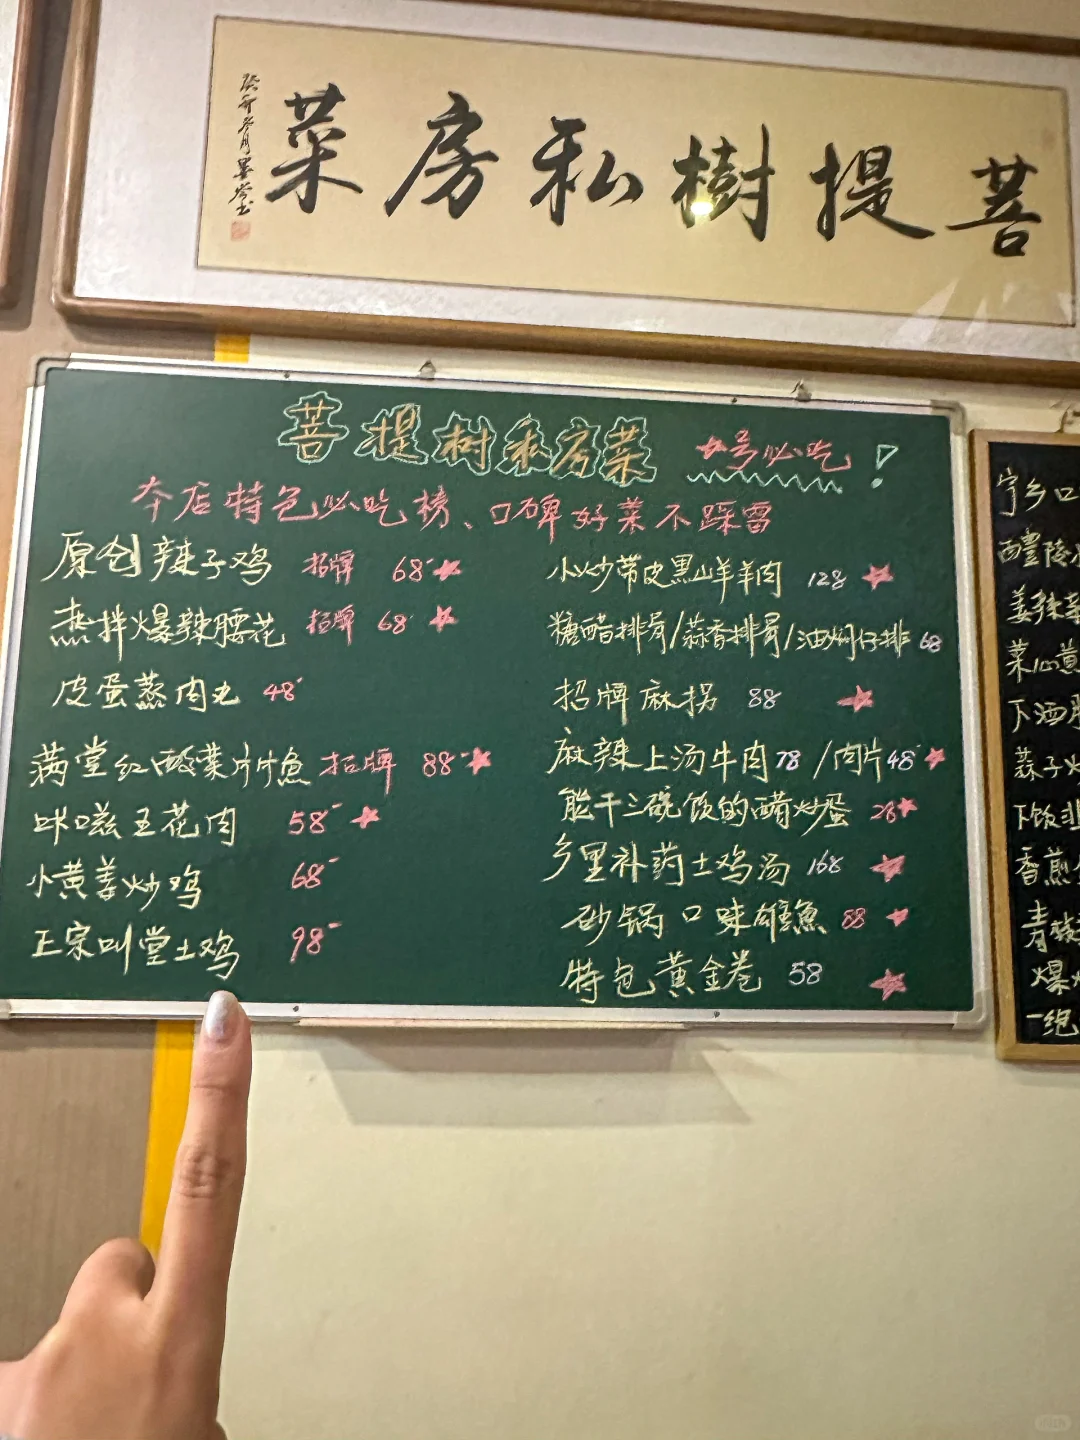 菩提樹私房菜
菩提树私房菜 ★号必吃!
本店特色必吃榜、口碑好菜不踩雷
原创辣子鸡 招牌 68 ★
烝拌爆辣腰花 招牌 68 ★
皮蛋蒸肉丸 48
满堂红酸菜片片魚 招牌 88 ★
咔嗞五花肉 58 ★
小黄姜炒鸡 68
正宗叫堂土鸡 98
小炒带皮黑山羊羊肉 128 ★
糖醋排骨/蒜香排骨/油焖仔排 68
招牌麻拐 88 ★
麻辣上汤牛肉78/肉片48 ★
能干三碗饭的醋炒蛋 28 ★
乡里补药土鸡汤 168 ★
砂锅口味雄魚 88 ★
特色黄金卷 58 ★
宁乡口
醴陵
姜辣
菜心
下酒
蒜子
下饭
香煎
青椒
爆炒
一绝